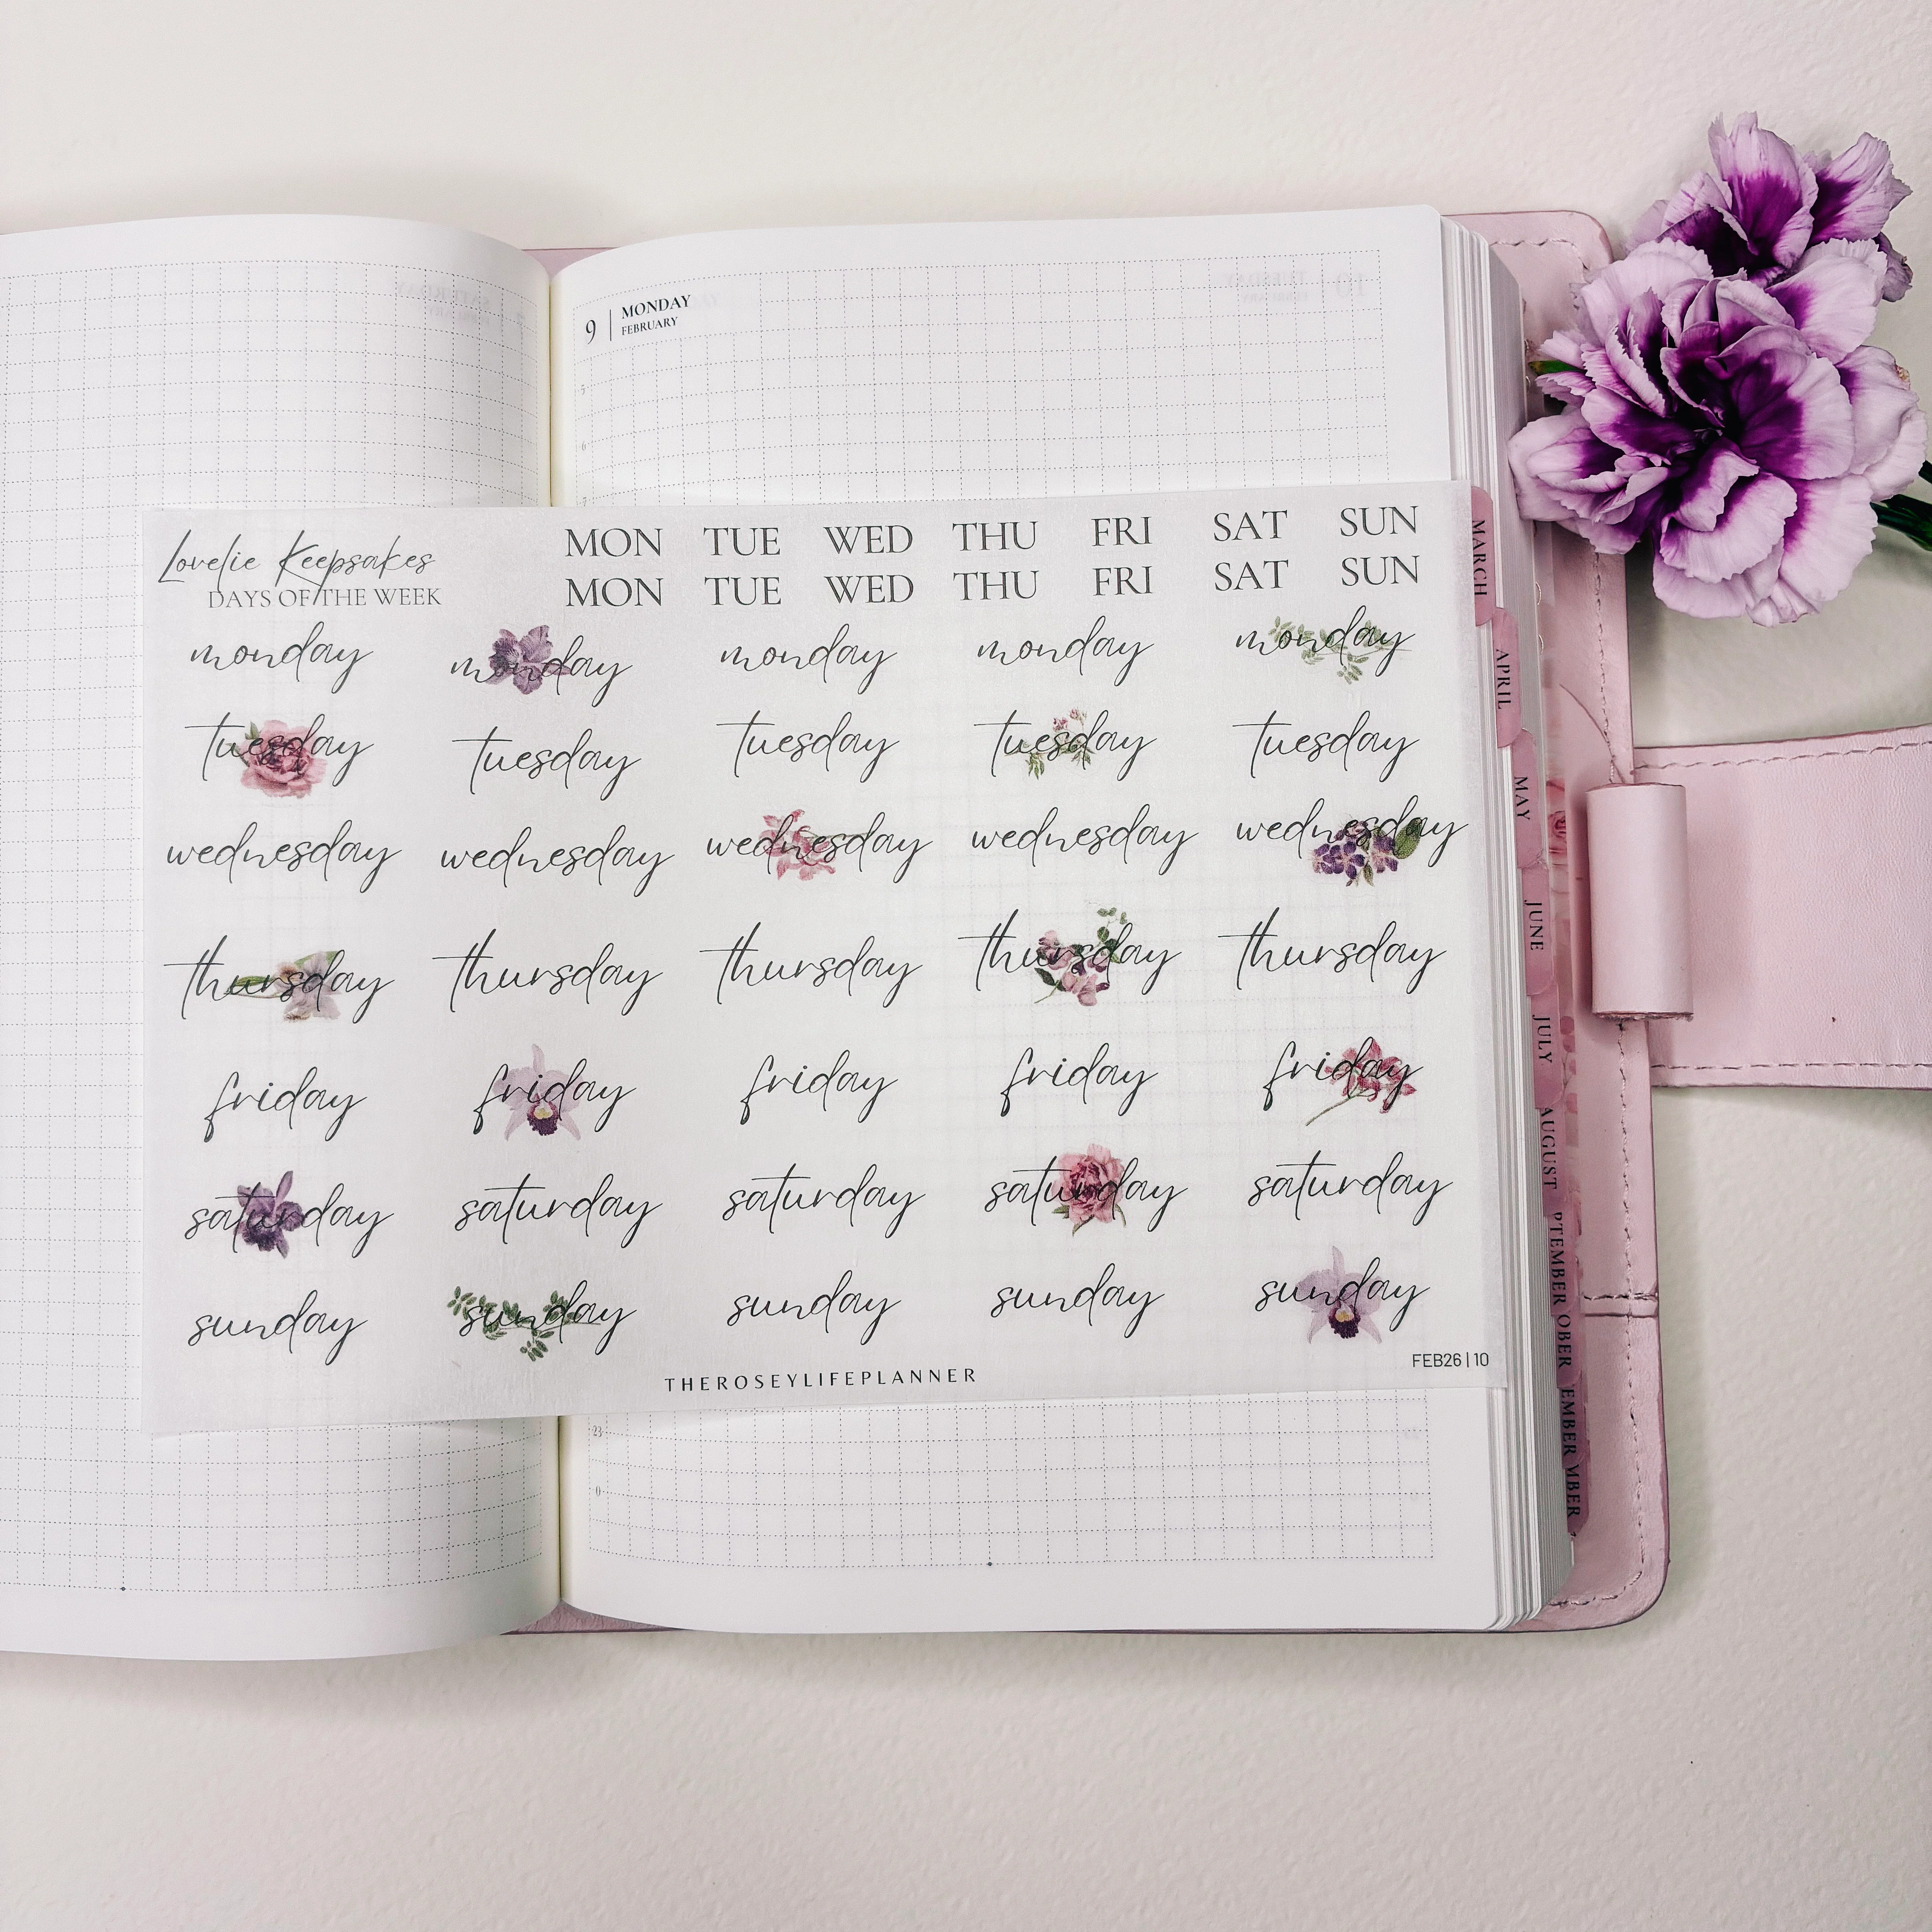 9 MONDAY
FEBRUARY
5
6
7
Lovelie Keepsakes
DAYS OF THE WEEK
MON TUE WED THU FRI SAT SUN
MON TUE WED THU FRI SAT SUN
monday monday monday monday monday
tuesday tuesday tuesday tuesday tuesday
wednesday wednesday wednesday wednesday wednesday
thursday thursday thursday thursday thursday
friday friday friday friday friday
saturday saturday saturday saturday saturday
sunday sunday sunday sunday sunday
THEROSEYLIFEPLANNER
FEB26|10
23
0
MARCH
APRIL
MAY
JUNE
JULY
AUGUST
PTEMBER
OBER
EMBER
MBER